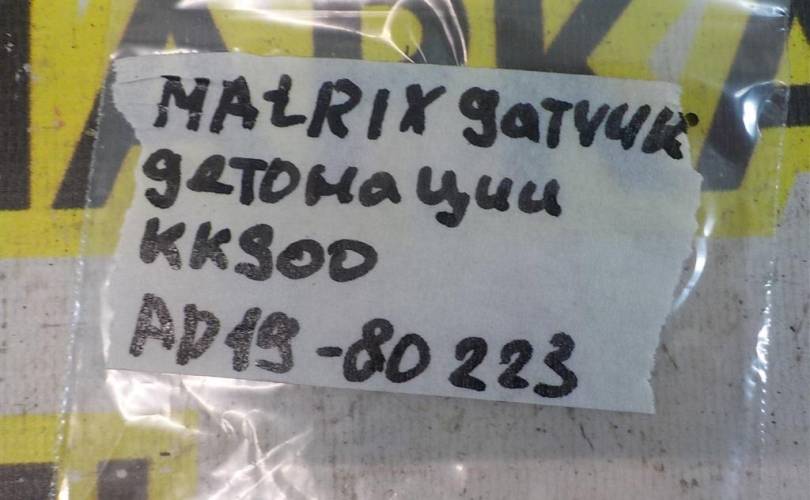 MATRIX датчик
детонации
KK900
AD19-80223